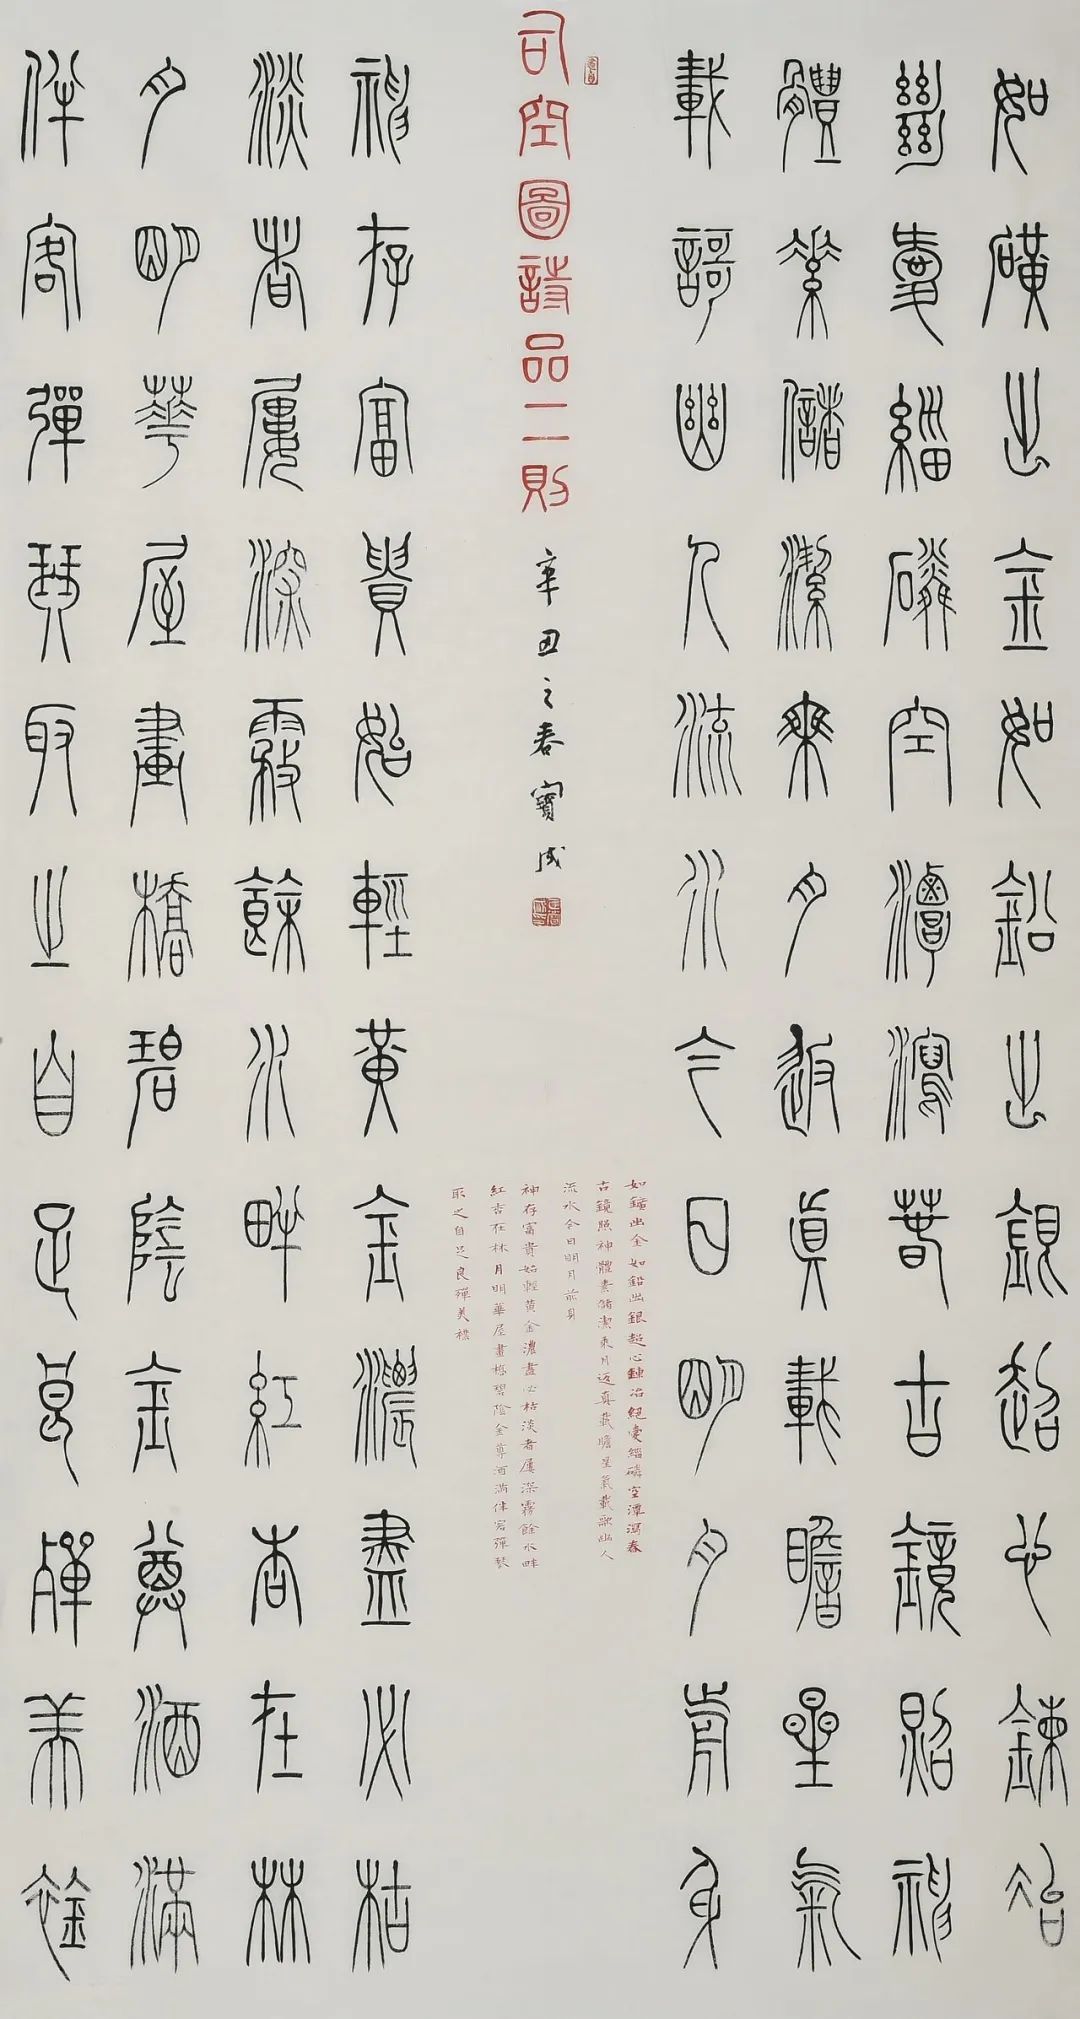 如礦出金如鉛出銀超心鍊冶
絕愛緇磷空潭瀉春古鏡照神
體素儲潔乘月返真載瞻星氣
載謌幽人流水今日明月前身
司空圖詩品二則
辛丑之春寶成
神存富貴始輕黃金濃盡必枯
淡者屢深霧餘水畔紅杏在林
月明華屋畫橋碧陰金尊酒滿
伴客彈琴取之自足良殫美襟
如鑛出金如鉛出銀超心鍊冶絕愛緇磷空潭瀉春
古鏡照神體素儲潔乘月返真載瞻星氣載歌幽人
流水今日明月前身
神存富貴始輕黃金濃盡必枯淡者屢深霧餘水畔
紅杏在林月明華屋畫橋碧陰金尊酒滿伴客彈琴
取之自足良殫美襟